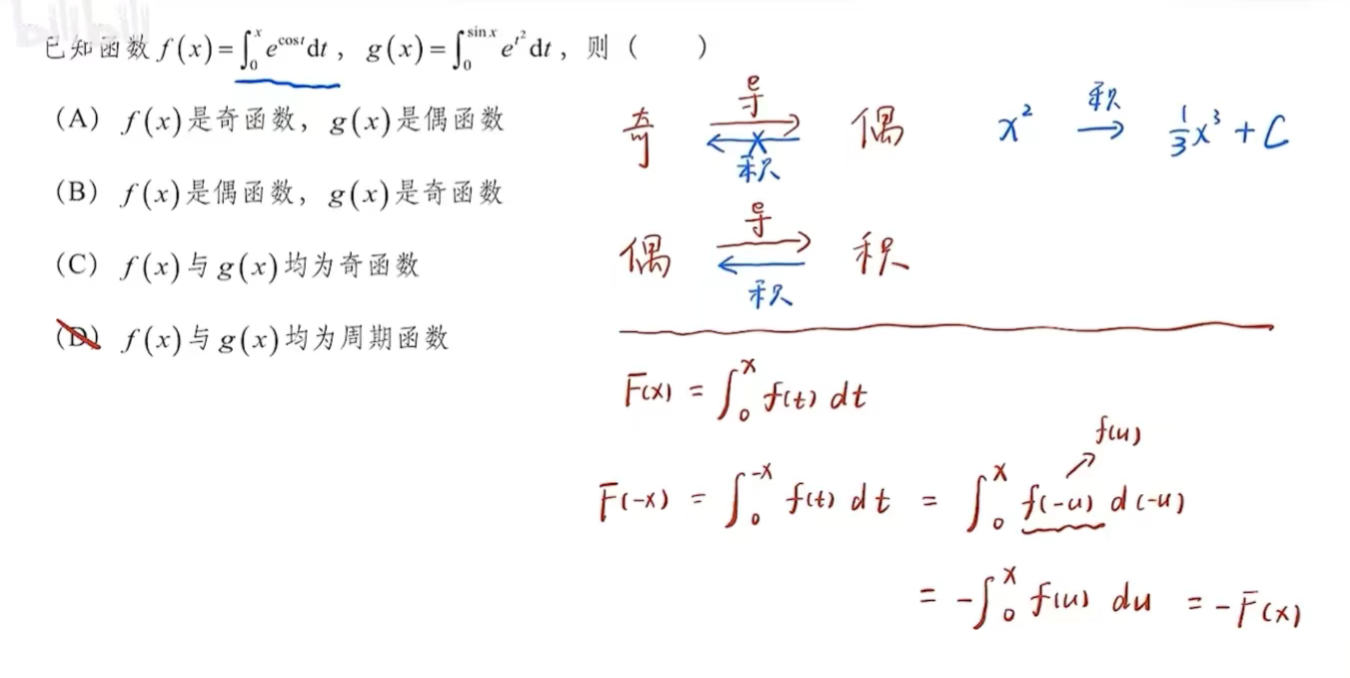 bilibili
已知函数 f(x)=∫₀ˣ e^{cos t} dt, g(x)=∫₀^{sin x} e^{t²} dt, 则 (    )
(A) f(x)是奇函数, g(x)是偶函数
(B) f(x)是偶函数, g(x)是奇函数
(C) f(x)与g(x)均为奇函数
(D) f(x)与g(x)均为周期函数
奇 导 积 偶
x² 积 → 1/3 x³ + C
偶 导 积 积
F(x) = ∫₀ˣ f(t) dt
f(u)
F(-x) = ∫₀^{-x} f(t) dt = ∫₀ˣ f(-u) d(-u)
= -∫₀ˣ f(u) du = -F(x)